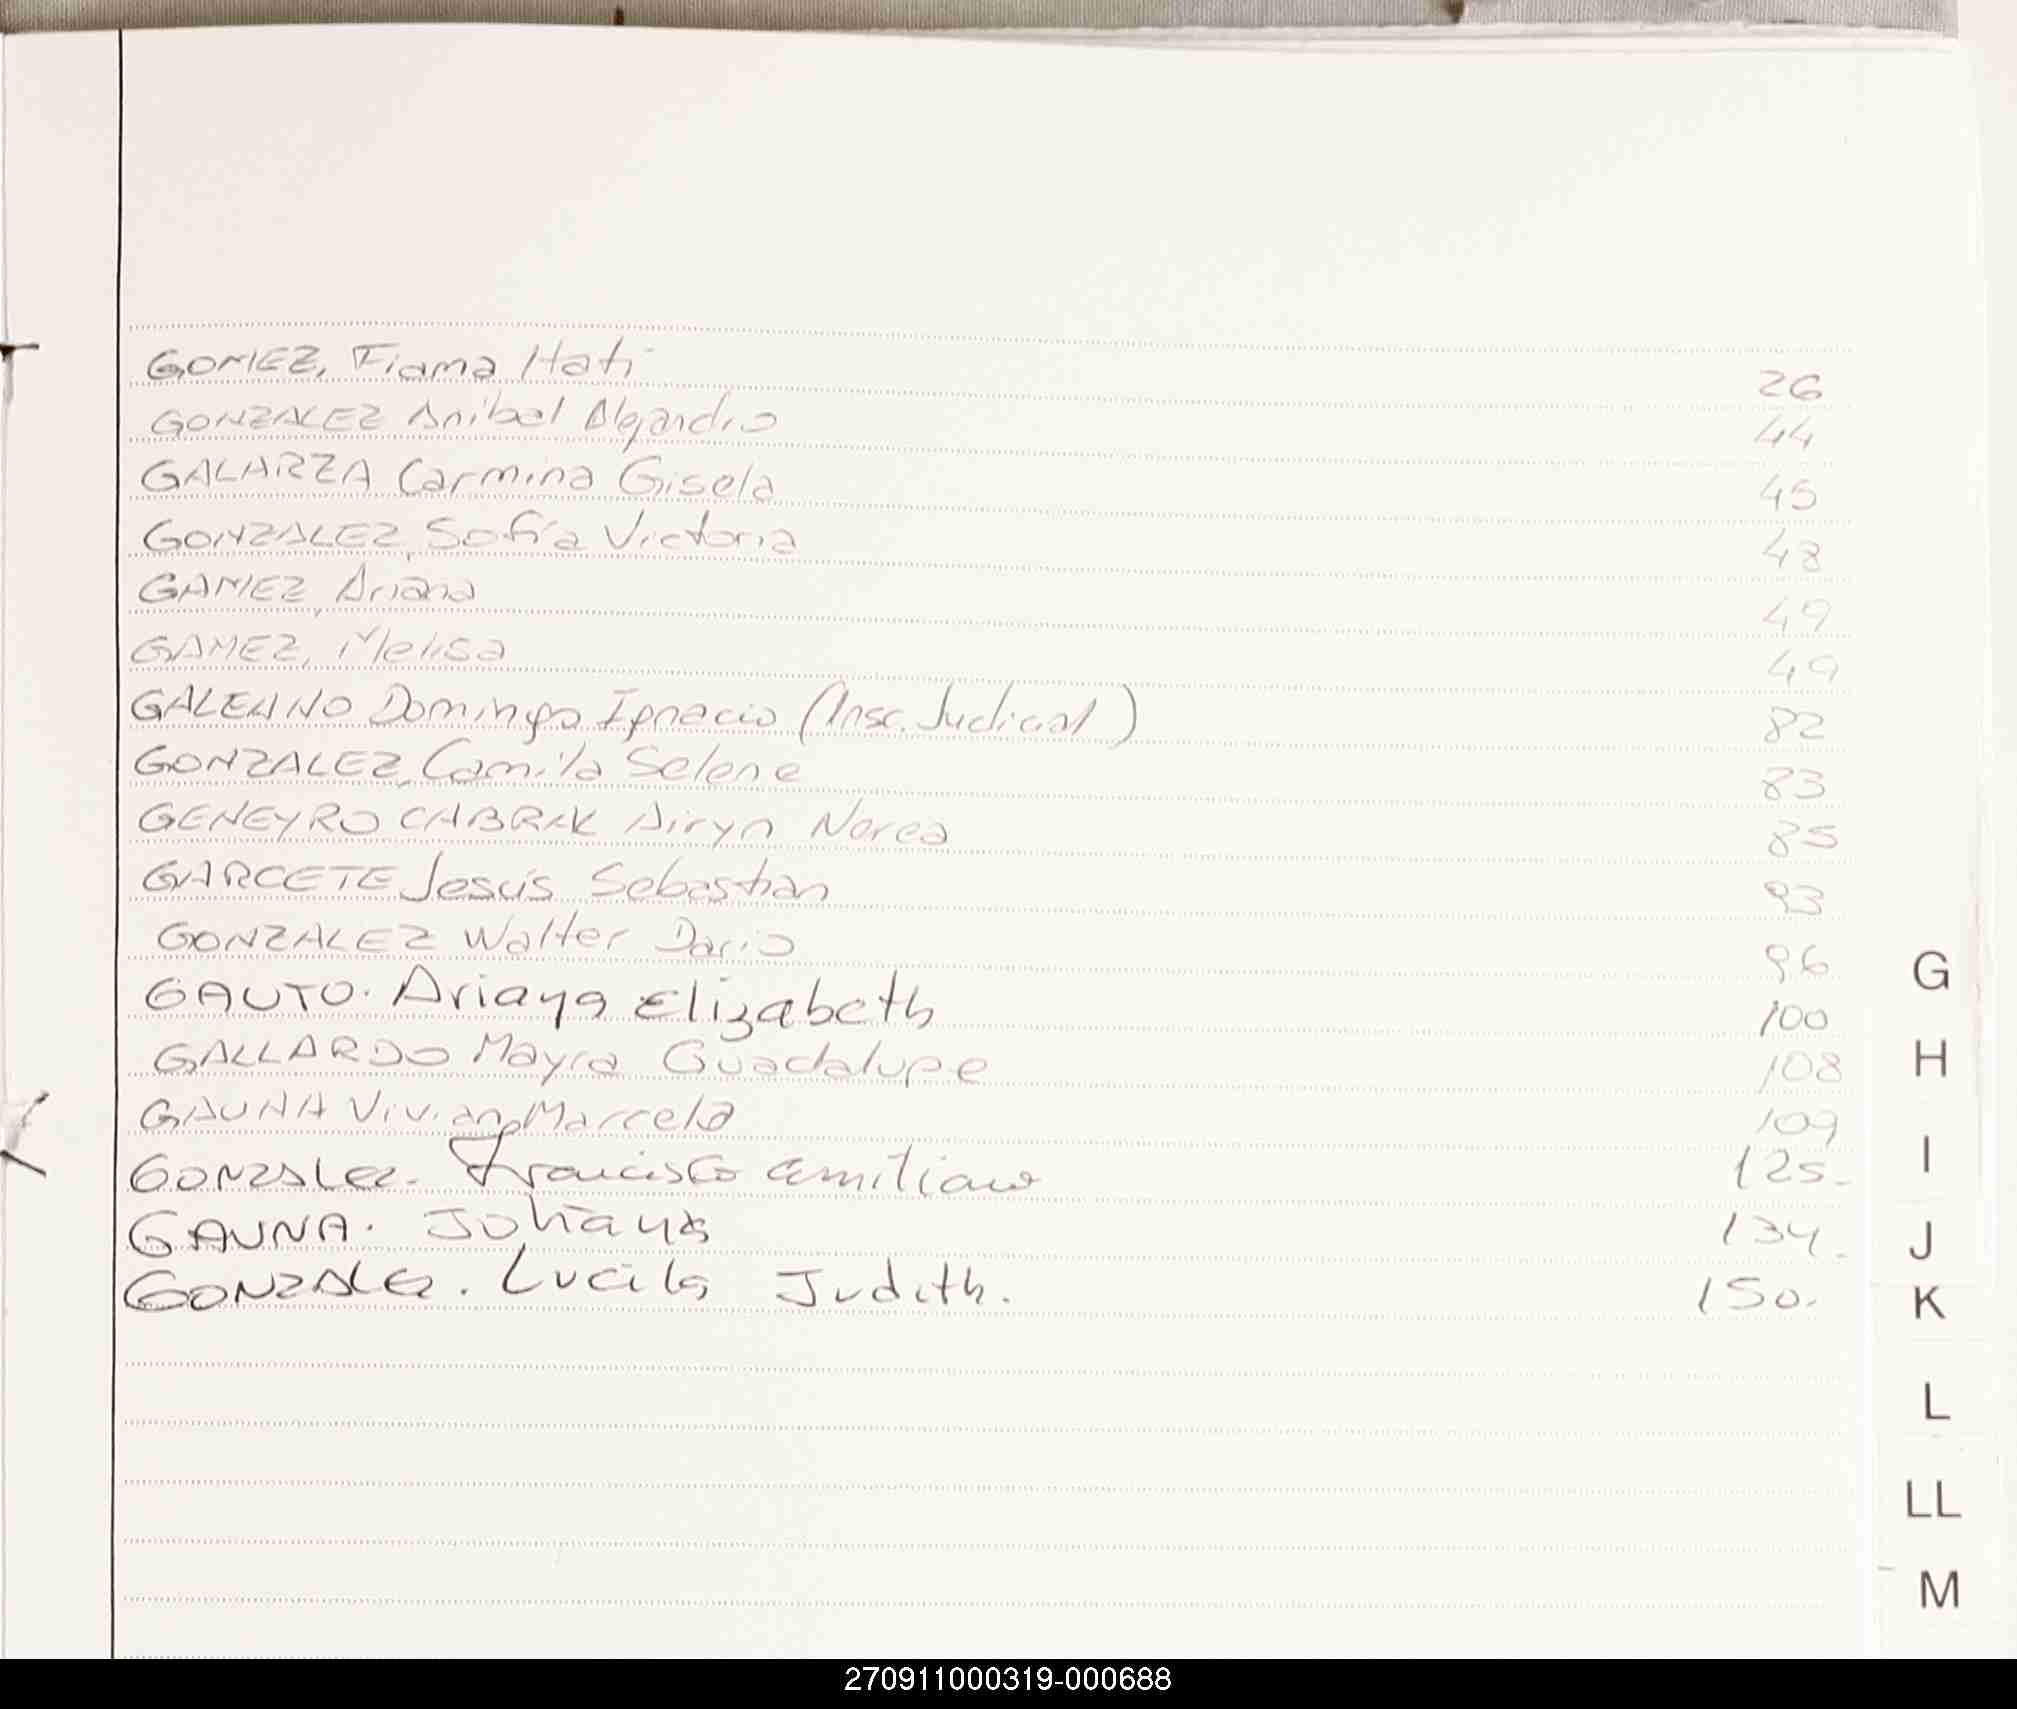 GOMEZ, Fiama Hati 26
GONZALEZ Anibal Alejandro 44
GALARZA Carmina Gisela 45
GONZALEZ, Sofía Victoria 48
GAMEZ, Ariana 49
GAMEZ, Melisa 49
GALEANO Domingo Ignacio (Insc. Judicial) 82
GONZALEZ, Camila Selene 83
GENEYRO CABRAL Airyn Norea 85
GARCETE Jesús Sebastian 93
GONZALEZ Walter Dario 96
GAUTO. Ariana Elizabeth 100
GALLARDO Mayra Guadalupe 108
GAUNA Viviana Marcela 109
GONZALEZ. Francisco Emiliano 125.
GAUNA. Johana 134.
GONZALEZ. Lucila Judith. 150.
G
H
I
J
K
L
LL
M
270911000319-000688